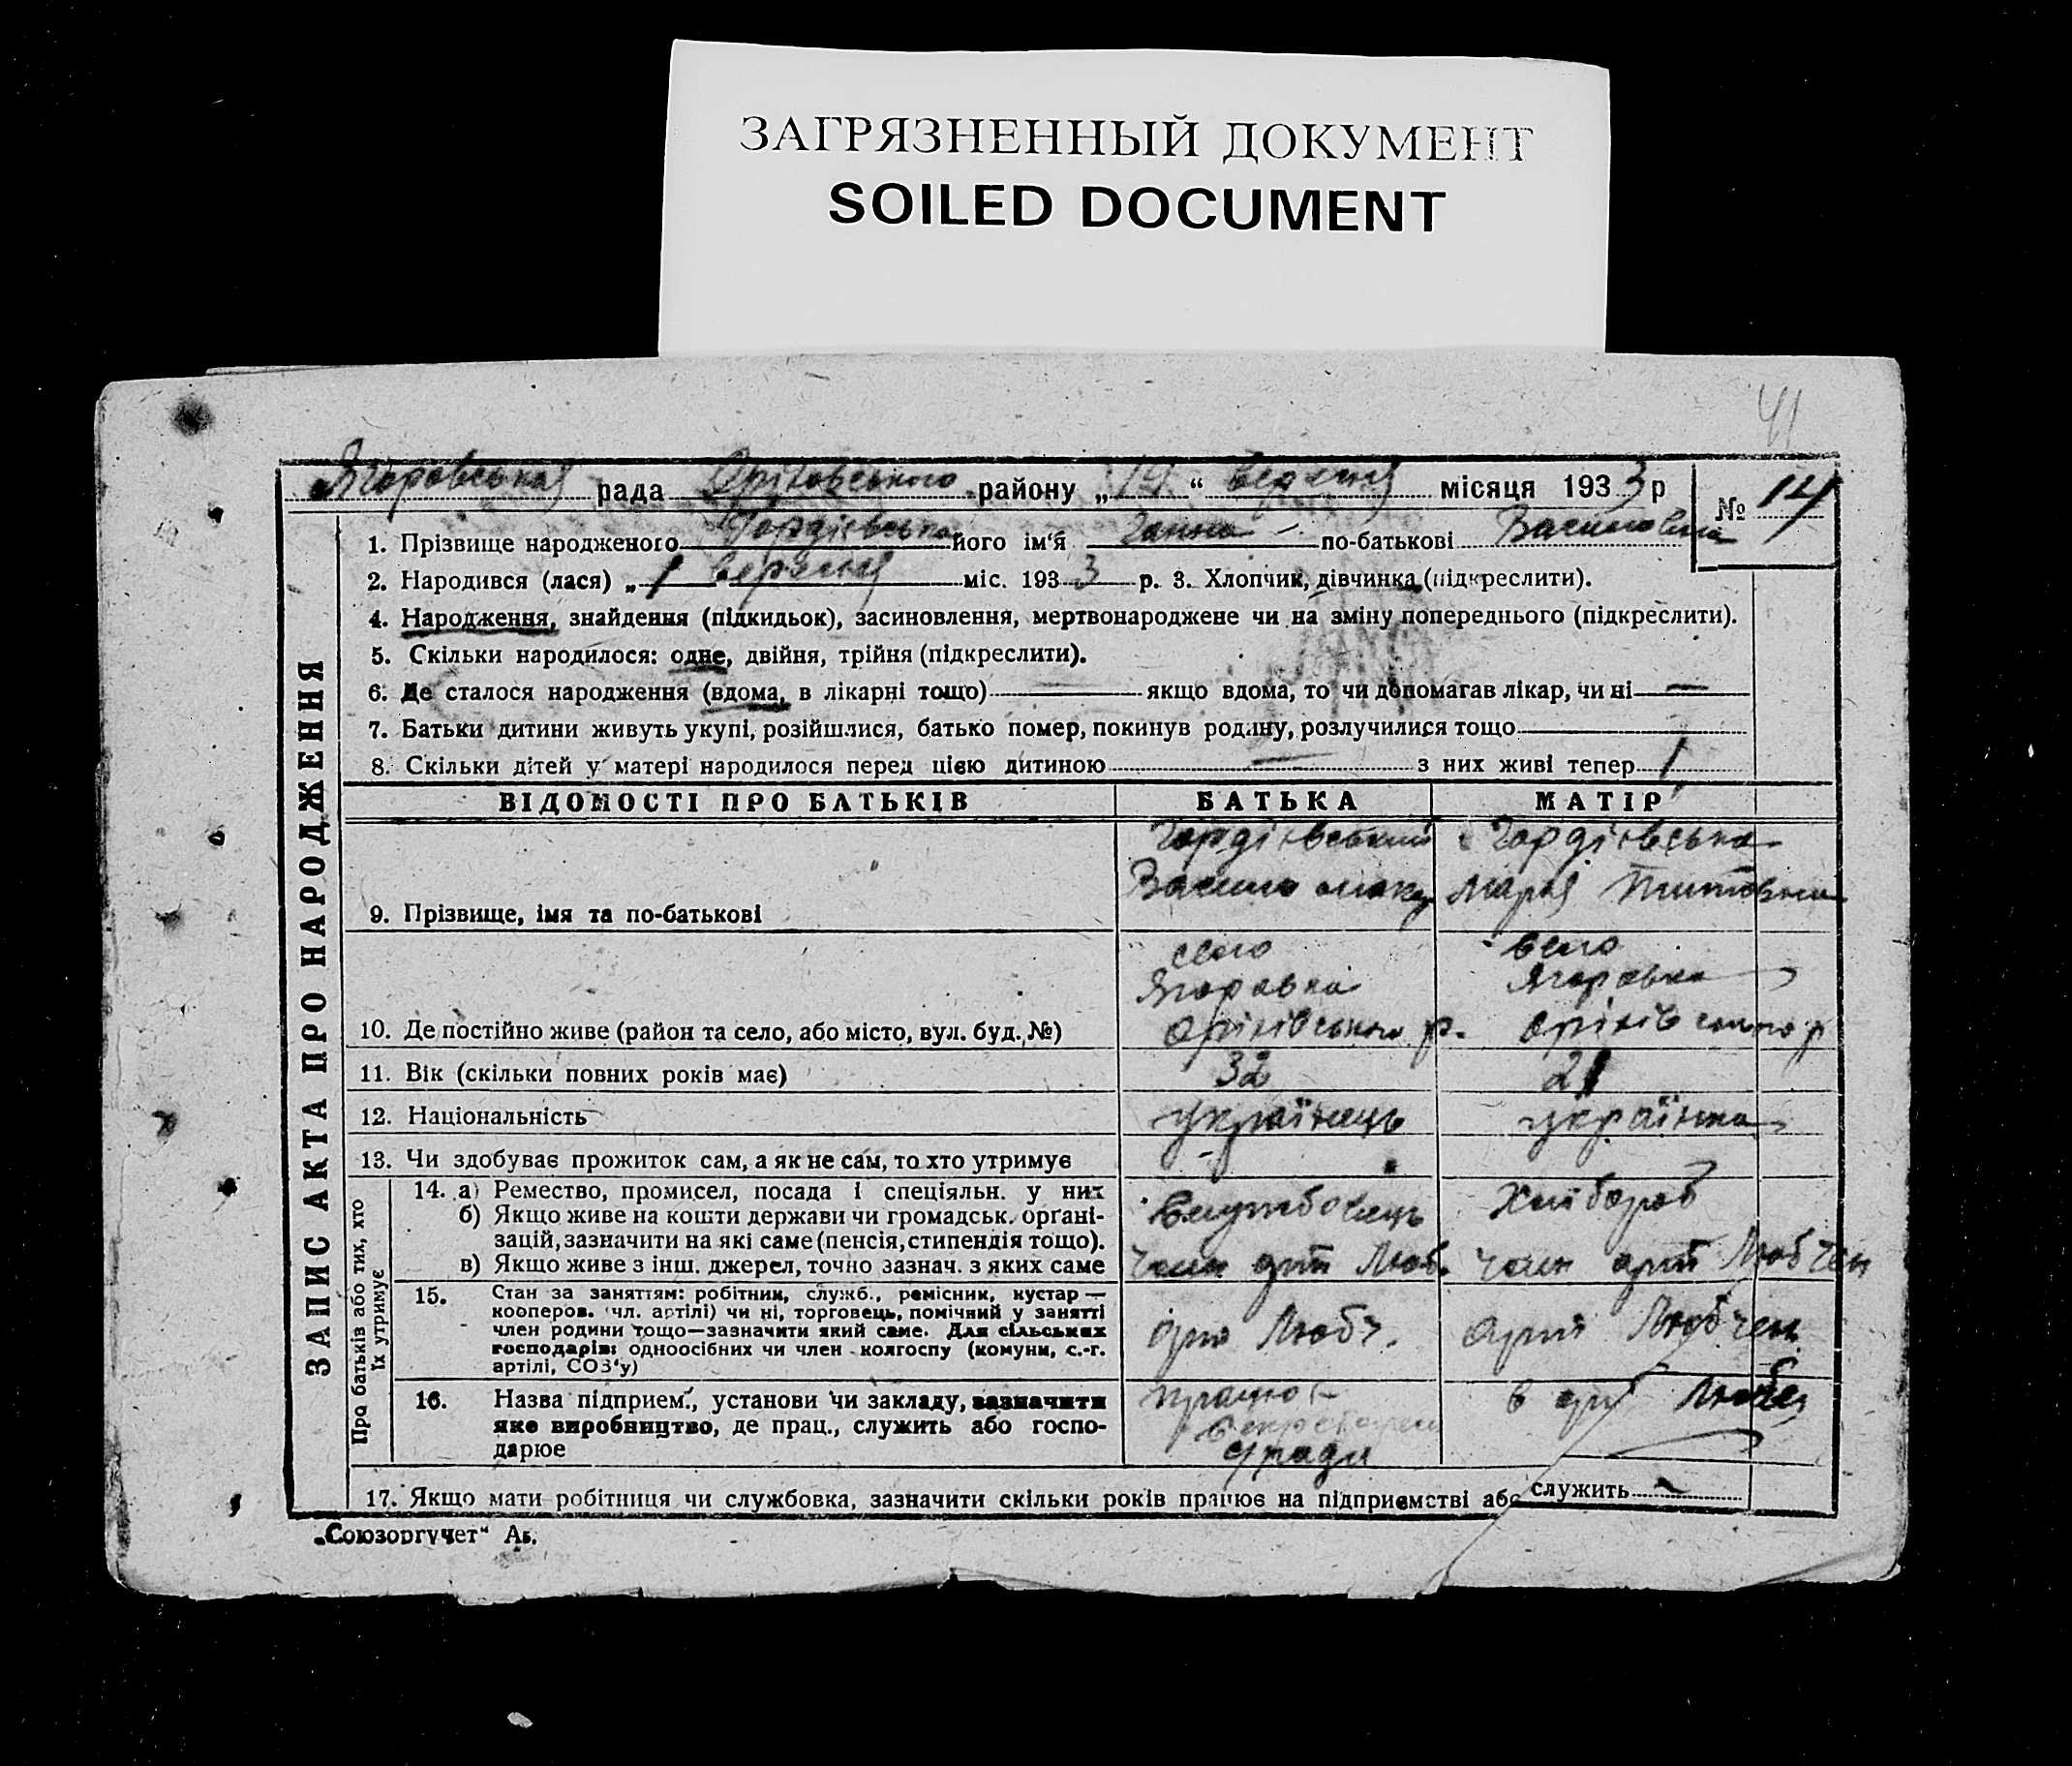 ЗАГРЯЗНЕННЫЙ ДОКУМЕНТ
SOILED DOCUMENT
41
Ягоровська рада Оріховського району „14“ вересня місяця 1933 р
№ 14
1. Прізвище народженого Гордієвська його ім'я Ганна по-батькові Василовна
2. Народився (лася) „1 вересня міс. 1933 р. 3. Хлопчик, дівчинка (підкреслити).
4. Народження, знайдення (підкидьок), засиновлення, мертвонароджене чи на зміну попереднього (підкреслити).
5. Скільки народилося: одне, двійня, трійня (підкреслити).
6. Де сталося народження (вдома, в лікарні тощо) — якщо вдома, то чи допомагав лікар, чи ні —
7. Батьки дитини живуть укупі, розійшлися, батько помер, покинув родину, розлучилися тощо
8. Скільки дітей у матері народилося перед цією дитиною — з них живі тепер 1
ЗАПИС АКТА ПРО НАРОДЖЕННЯ
ВІДОМОСТІ ПРО БАТЬКІВ БАТЬКА МАТІР
Гордієвський Гордієвська
9. Прізвище, імя та по-батькові Василь Мария Титовна
село село
Ягоровка Ягоровка
10. Де постійно живе (район та село, або місто, вул. буд. №) Оріхівського р. Оріхівського р
11. Вік (скільки повних років має) 32 21
12. Національність українець українка
13. Чи здобуває прожиток сам, а як не сам, то хто утримує -
Про батьків або тих, хто їх утримує
14. а) Ремество, промисел, посада і спеціяльн. у них службовець Хлібороб
б) Якщо живе на кошти держави чи громадськ. орґані-
зацій, зазначити на які саме (пенсія, стипендія тощо).
в) Якщо живе з інш. джерел, точно зазнач. з яких саме член арт Люб. член арт Любчен
15. Стан за заняттям: робітник, служб., ремісник, кустар —
кооперов. (чл. артілі) чи ні, торговець, помічний у занятті
член родини тощо—зазначити який саме. Для сільських
господарів: одноосібних чи член колгоспу (комуни, с.-г. арт Любч. Арт Любчен
артілі, СОЗ'у)
16. Назва підприєм., установи чи закладу, зазначити працює в арт Любч
яке виробництво, де прац., служить або госпо-
дарюе с/ради
17. Якщо мати робітниця чи службовка, зазначити скільки років працює на підприємстві або служить -
„Союзоргучет“